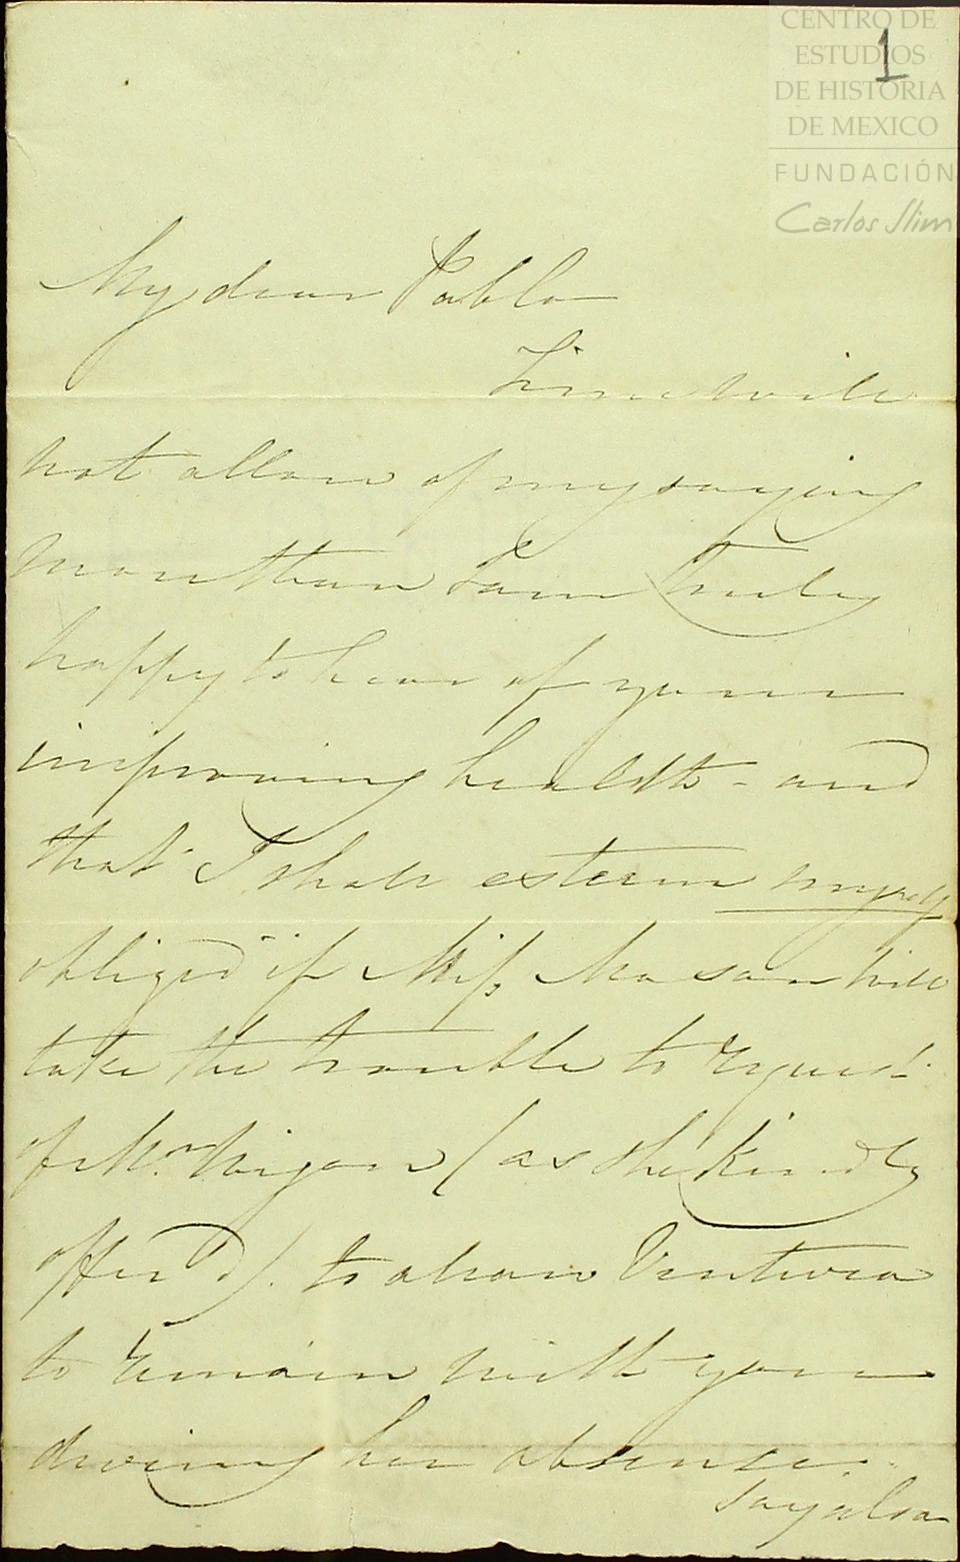 CENTRO DE
ESTUDIOS
DE HISTORIA
DE MEXICO
FUNDACIÓN
Carlos Slim
1
My dear Pablo
Time will
not allow of my saying
more than I am truly
happy to hear of your
improving health - and
that I shall esteem myself
obliged if Miss Mason will
take the trouble to request
of Mr. (as she kindly
offer'd). to allow Ventura
to remain with you
during her absence.
Say also